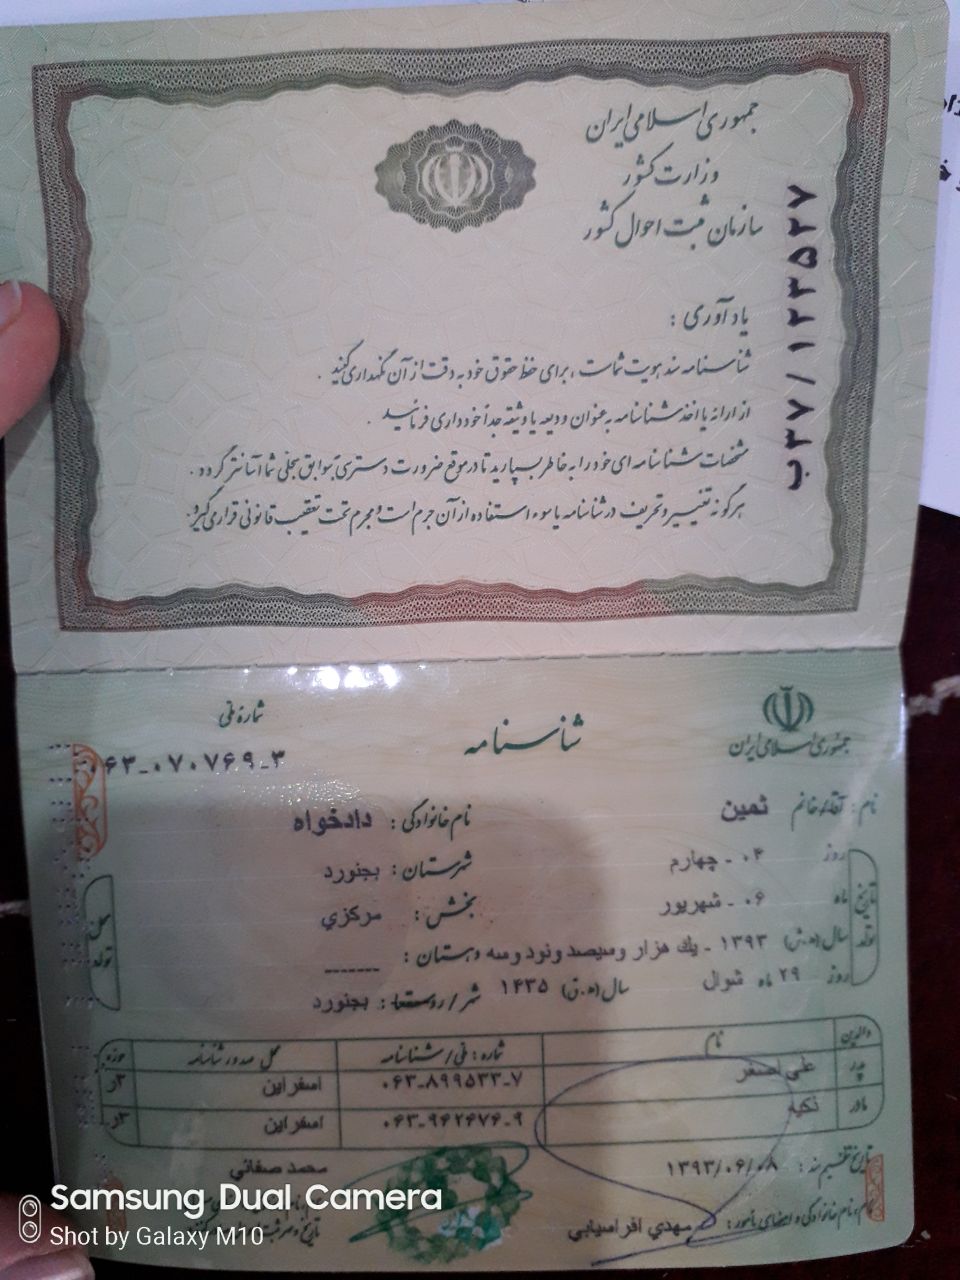 جمهوری اسلامی ایران
وزارت کشور
سازمان ثبت احوال کشور
ب۳۷/۱۲۳۵۲۷
یادآوری :
شناسنامه سند هویت شماست ، برای حفظ حقوق خود به دقت از آن نگهداری کنید .
از ارائه یا اخذ شناسنامه به عنوان ودیعه یا وثیقه جداً خودداری فرمائید .
مشخصات شناسنامه ای خود را به خاطر بسپارید تا در موقع ضرورت دسترسی به سوابق سجلی شما آسانتر گردد .
هرگونه تغییر و تحریف در شناسنامه یا سوء استفاده از آن جرم است و مجرم تحت تعقیب قانونی قرار می گیرد.
جمهوری اسلامی ایران
شناسنامه
شماره ملی
۰۶۳-۰۷۰۷۶۹-۳
نام : آقا/خانم ثمین
نام خانوادگی : دادخواه
تاریخ تولد
روز ۰۴ - چهارم
ماه ۰۶ - شهریور
سال (ه.ش) ۱۳۹۳ - یك هزار وسیصد ونود وسه
روز ۲۹ ماه شوال سال (ه.ق) ۱۴۳۵
محل تولد
شهرستان : بجنورد
بخش : مرکزي
دهستان : -------
شهر/روستا : بجنورد
والدین نام شماره : ملی/شناسنامه محل صدور شناسنامه حوزه
پدر علی اصغر ۰۶۳-۸۹۹۵۳۳-۷ اسفراین ۳ر
مادر تکیه ۰۶۳-۹۶۲۶۷۶-۹ اسفراین ۳ر
تاریخ تنظیم سند : ۱۳۹۳/۰۶/۰۸
نام و نام خانوادگی و امضای مأمور : مهدي افراسیابي
محمد صفائي
Samsung Dual Camera
Shot by Galaxy M10